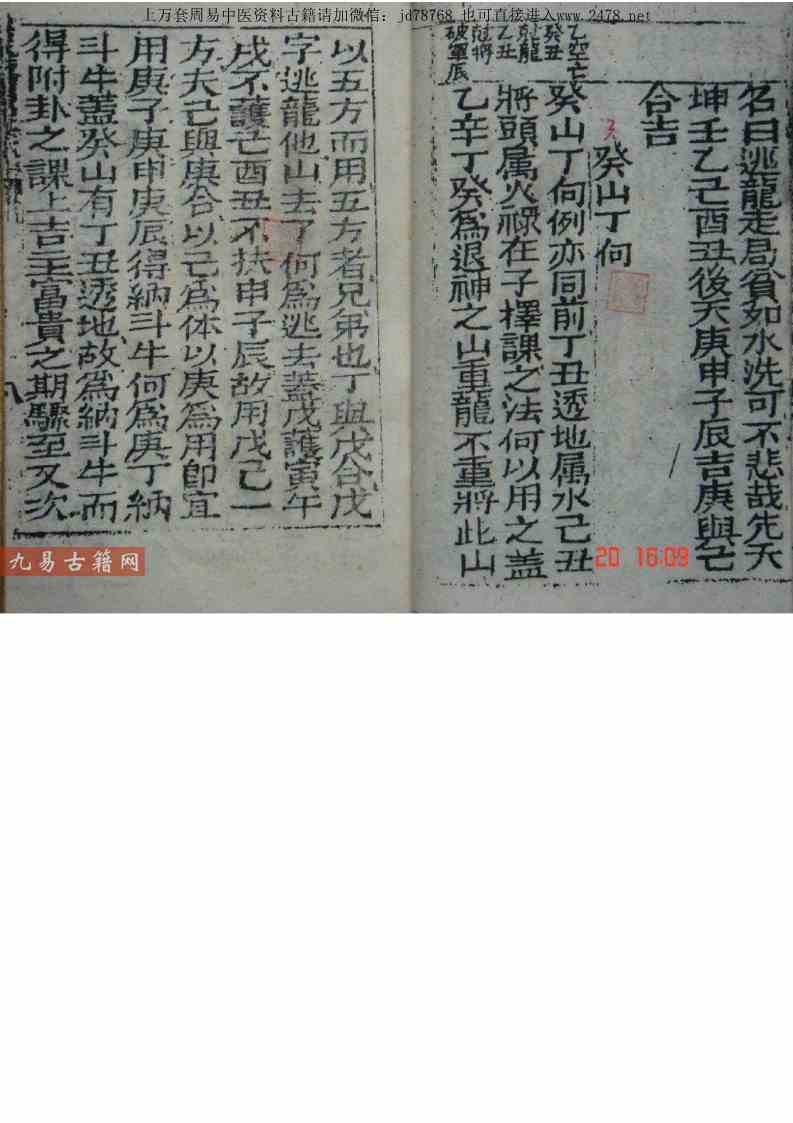 上万套周易中医资料古籍请加微信：jd78768 也可直接进入www.2478.net
名曰逃龍走局貧如水洗可不悲哉先天
坤壬乙己酉丑後天庚申子辰吉庚與乙
合吉
癸山丁向
乙空亡
癸丑
尅龍
乙丑
尅將
破軍辰
癸山丁向例亦同前丁丑透地属水己丑
將頭属火祿在子擇課之法何以用之蓋
乙辛丁癸為退神之山重龍不重將此山
以五方而用五方者兄弟也丁與戊合戊
字逃龍他山去了何為逃去蓋戊護寅午
戌不護己酉丑不扶申子辰故用戊己一
方夫己與庚合以己為体以庚為用即宜
用庚子庚申庚辰得納斗牛何為庚丁納
斗牛蓋癸山有丁丑透地故為納斗牛而
得附卦之課上吉主富貴之期驟至又次
八
九易古籍网
20 16:09